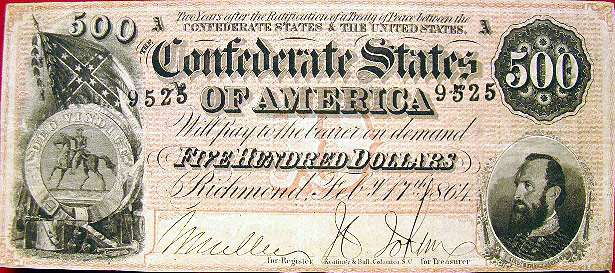 500 A Two Years after the Ratification of a Treaty of Peace between the A
CONFEDERATE STATES & THE UNITED STATES.
THE
Confederate States 500
9525 OF AMERICA 9525
Will pay to the bearer on demand
DEO VINDICE
FIVE HUNDRED DOLLARS
Richmond, Feb.y 17th 1864.
for Register Keatinge & Ball, Columbia S.C. for Treasurer